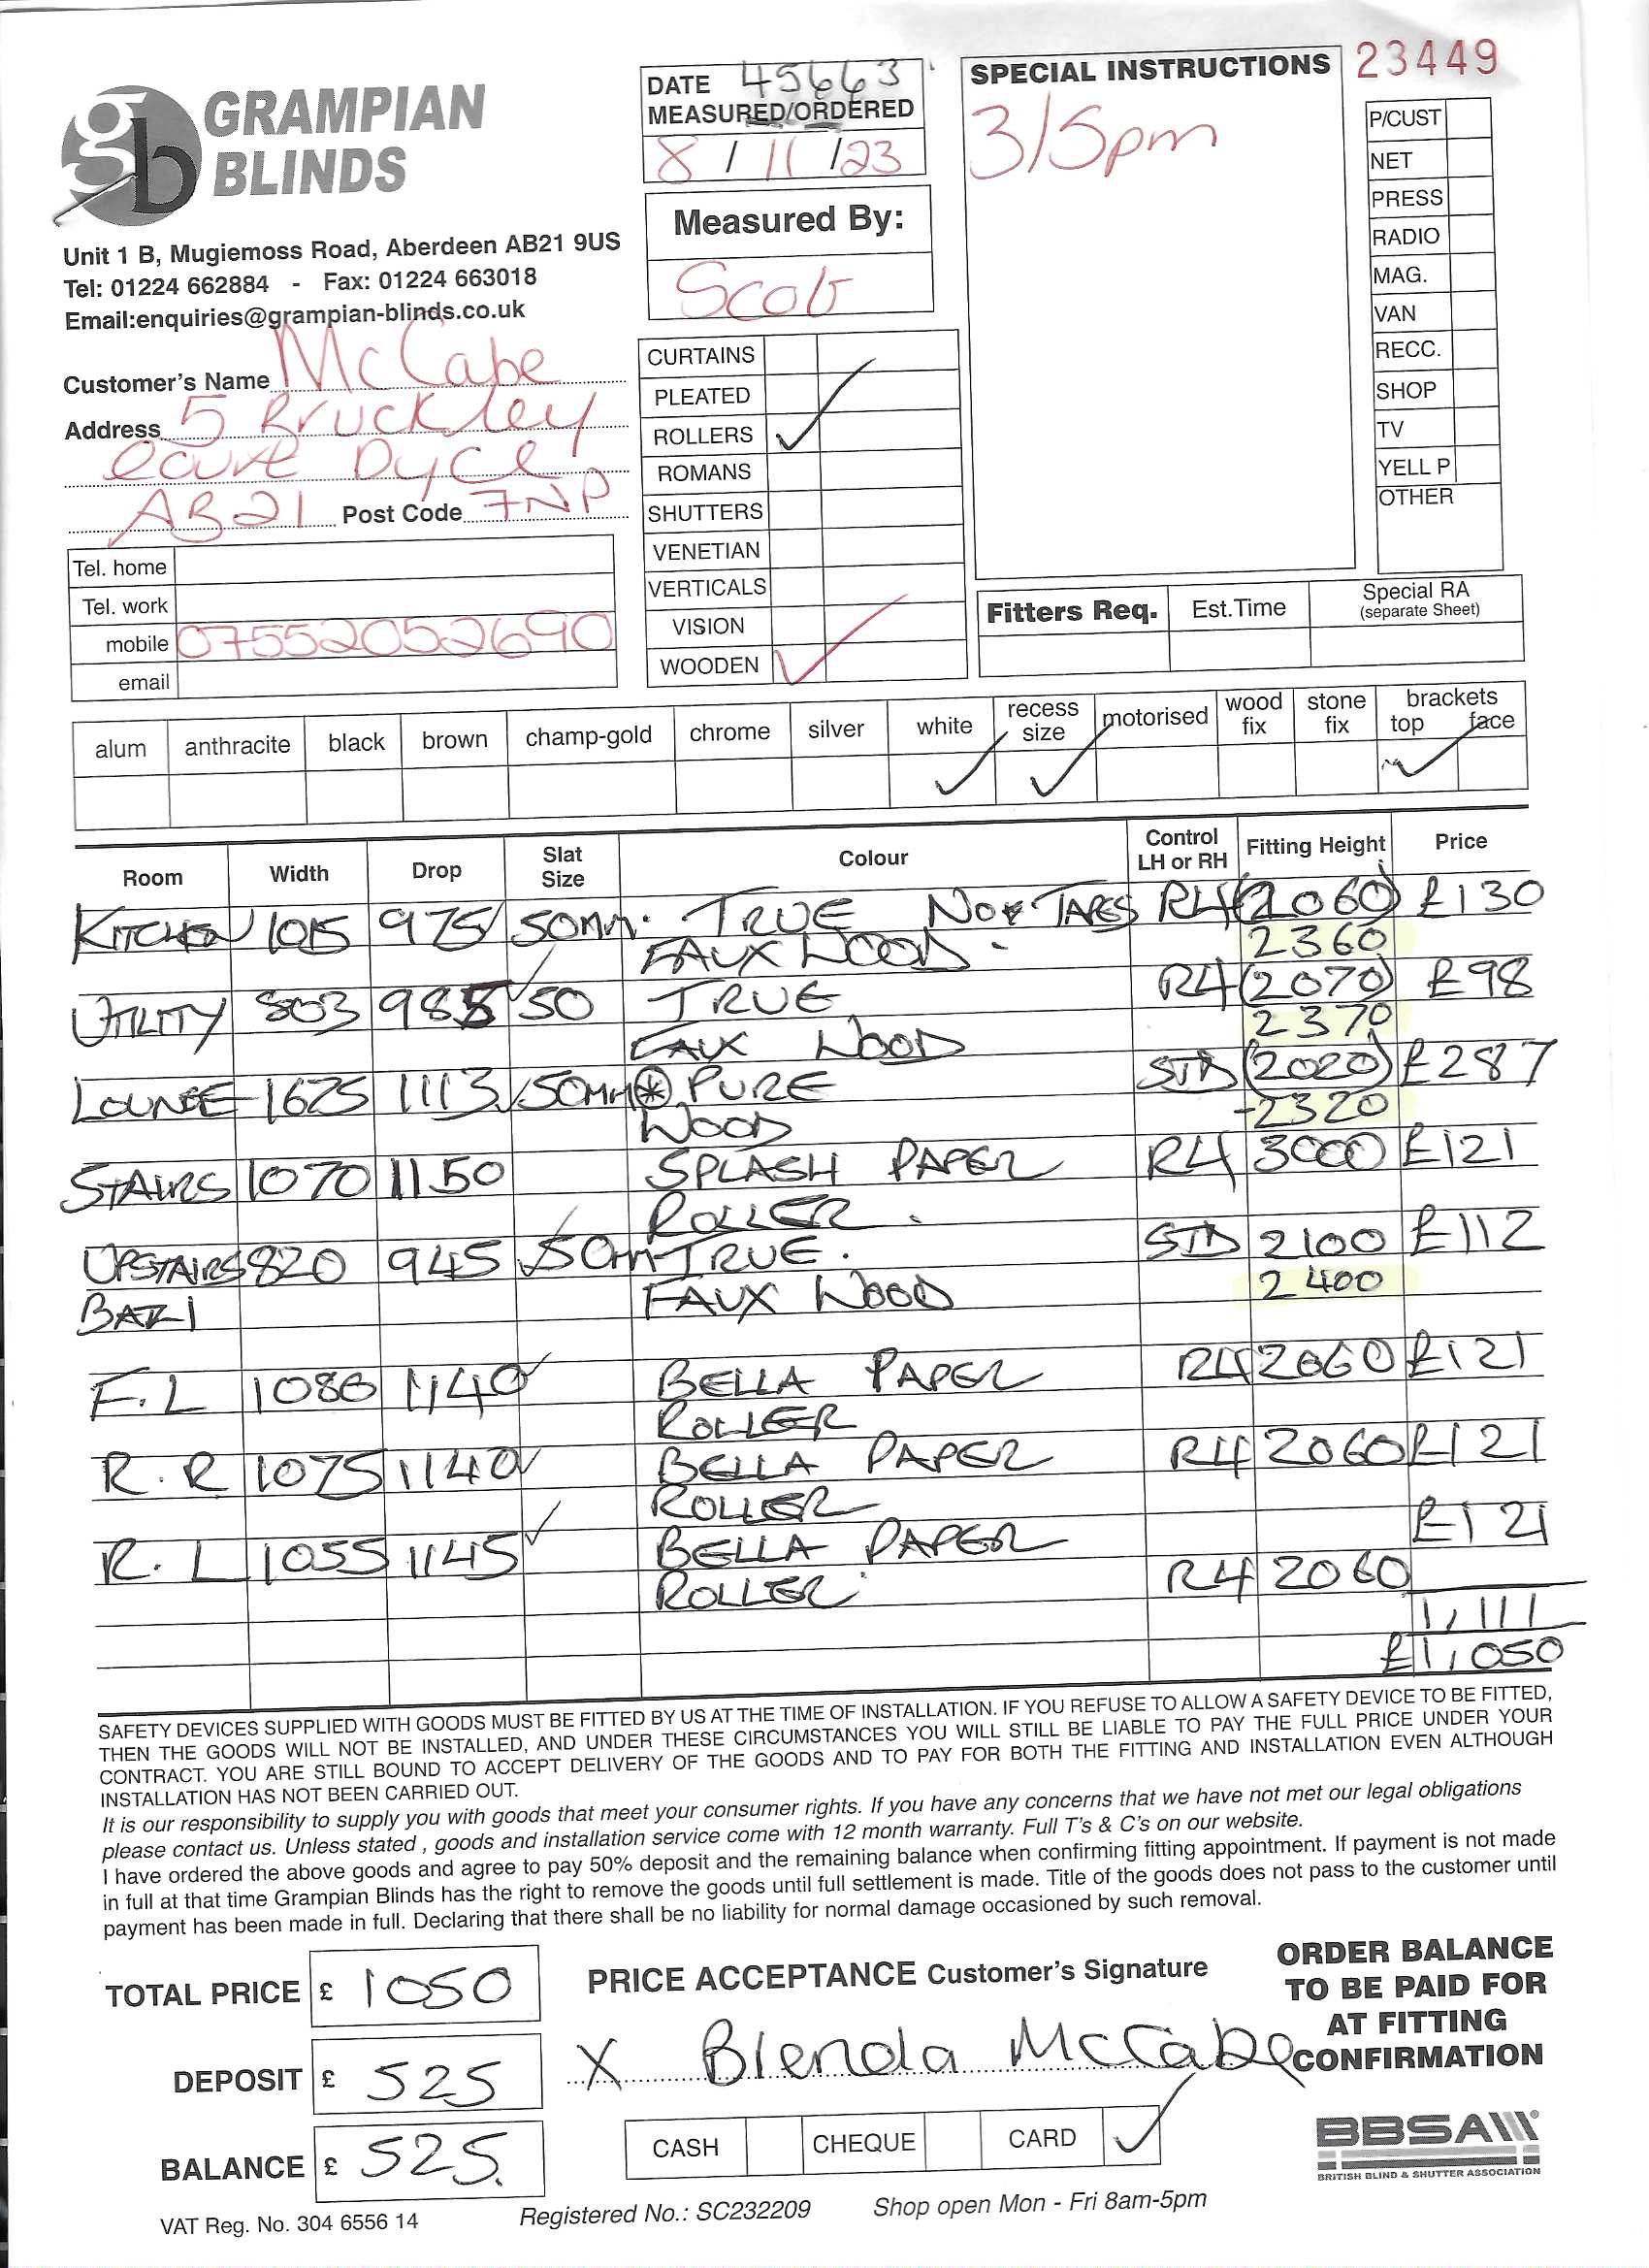 GRAMPIAN
BLINDS
Unit 1 B, Mugiemoss Road, Aberdeen AB21 9US
Tel: 01224 662884 - Fax: 01224 663018
Email:enquiries@grampian-blinds.co.uk
Customer's Name McCabe
Address 5 Bruckley
Dyce
AB21 Post Code 7NP
Tel. home
Tel. work
mobile 07552052690
email
DATE 45663
MEASURED/ORDERED
8 / 11 / 23
Measured By:
Scott
CURTAINS
PLEATED
ROLLERS ✓
ROMANS
SHUTTERS
VENETIAN
VERTICALS
VISION
WOODEN ✓
SPECIAL INSTRUCTIONS
3/5pm
23449
P/CUST
NET
PRESS
RADIO
MAG.
VAN
RECC.
SHOP
TV
YELL P
OTHER
Fitters Req. Est.Time Special RA
(separate Sheet)
alum anthracite black brown champ-gold chrome silver white recess size motorised wood fix stone fix brackets top face
Room Width Drop Slat Size Colour Control LH or RH Fitting Height Price
KITCHEN 1015 975 50mm TRUE No TAPES RH (2060) £130
FAUX WOOD 2360
UTILITY 803 985 50 TRUE RH (2070) £98
FAUX WOOD 2370
LOUNGE 1625 1113 50mm PURE STD (2020) £287
WOOD -2320
STAIRS 1070 1150 SPLASH PAPER RH 3000 £121
ROLLER
UPSTAIRS 820 945 50m TRUE STD 2100 £112
FAUX WOOD 2400
F.L 1080 1140 BELLA PAPER RH 2060 £121
ROLLER
R.R 1075 1140 BELLA PAPER RH 2060 £121
ROLLER
R.L 1055 1145 BELLA PAPER £121
ROLLER RH 2060
1,111
£1,050
SAFETY DEVICES SUPPLIED WITH GOODS MUST BE FITTED BY US AT THE TIME OF INSTALLATION. IF YOU REFUSE TO ALLOW A SAFETY DEVICE TO BE FITTED,
THEN THE GOODS WILL NOT BE INSTALLED, AND UNDER THESE CIRCUMSTANCES YOU WILL STILL BE LIABLE TO PAY THE FULL PRICE UNDER YOUR
CONTRACT. YOU ARE STILL BOUND TO ACCEPT DELIVERY OF THE GOODS AND TO PAY FOR BOTH THE FITTING AND INSTALLATION EVEN ALTHOUGH
INSTALLATION HAS NOT BEEN CARRIED OUT.
It is our responsibility to supply you with goods that meet your consumer rights. If you have any concerns that we have not met our legal obligations
please contact us. Unless stated , goods and installation service come with 12 month warranty. Full T's & C's on our website.
I have ordered the above goods and agree to pay 50% deposit and the remaining balance when confirming fitting appointment. If payment is not made
in full at that time Grampian Blinds has the right to remove the goods until full settlement is made. Title of the goods does not pass to the customer until
payment has been made in full. Declaring that there shall be no liability for normal damage occasioned by such removal.
TOTAL PRICE £ 1050
DEPOSIT £ 525
BALANCE £ 525.
PRICE ACCEPTANCE Customer's Signature
X Blenda McCabe
CASH CHEQUE CARD ✓
ORDER BALANCE
TO BE PAID FOR
AT FITTING
CONFIRMATION
BBSA
BRITISH BLIND & SHUTTER ASSOCIATION
VAT Reg. No. 304 6556 14 Registered No.: SC232209 Shop open Mon - Fri 8am-5pm